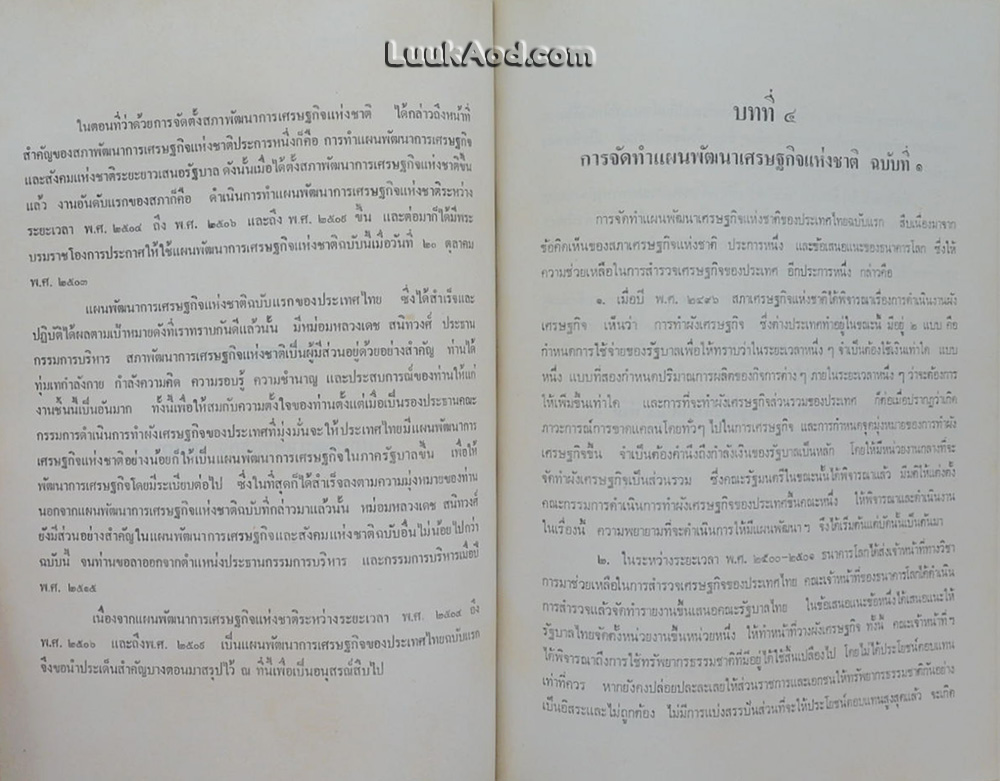 LuukAod.com
ในตอนที่ว่าด้วยการจัดตั้งสภาพัฒนาการเศรษฐกิจแห่งชาติ ได้กล่าวถึงหน้าที่
สำคัญของสภาพัฒนาการเศรษฐกิจแห่งชาติประการหนึ่งก็คือ การทำแผนพัฒนาการเศรษฐกิจ
และสังคมแห่งชาติระยะยาวเสนอรัฐบาล ดังนั้นเมื่อได้ตั้งสภาพัฒนาการเศรษฐกิจแห่งชาติขึ้น
แล้ว งานอันดับแรกของสภาก็คือ ดำเนินการทำแผนพัฒนาการเศรษฐกิจแห่งชาติระหว่าง
ระยะเวลา พ.ศ. ๒๕๐๔ ถึง พ.ศ. ๒๕๐๖ และถึง พ.ศ. ๒๕๐๙ ขึ้น และต่อมาก็ได้มีพระ
บรมราชโองการประกาศให้ใช้แผนพัฒนาการเศรษฐกิจแห่งชาติฉบับนี้เมื่อวันที่ ๒๐ ตุลาคม
พ.ศ. ๒๕๐๓
แผนพัฒนาการเศรษฐกิจแห่งชาติฉบับแรกของประเทศไทย ซึ่งได้สำเร็จและ
ปฏิบัติได้ผลตามเป้าหมายดังที่เราทราบกันดีแล้วนั้น มีหม่อมหลวงเดช สนิทวงศ์ ประธาน
กรรมการบริหาร สภาพัฒนาการเศรษฐกิจแห่งชาติเป็นผู้มีส่วนอยู่ด้วยอย่างสำคัญ ท่านได้
ทุ่มเทกำลังกาย กำลังความคิด ความรอบรู้ ความชำนาญ และประสบการณ์ของท่านให้แก่
งานชิ้นนี้เป็นอันมาก ทั้งนี้เพื่อให้สมกับความตั้งใจของท่านตั้งแต่เมื่อเป็นรองประธานคณะ
กรรมการดำเนินการทำผังเศรษฐกิจของประเทศที่มุ่งมั่นจะให้ประเทศไทยมีแผนพัฒนาการ
เศรษฐกิจแห่งชาติอย่างน้อยก็ให้เป็นแผนพัฒนาการเศรษฐกิจในภาครัฐบาลขึ้น เพื่อให้
พัฒนาการเศรษฐกิจโดยมีระเบียบต่อไป ซึ่งในที่สุดก็ได้สำเร็จลงตามความมุ่งหมายของท่าน
นอกจากแผนพัฒนาการเศรษฐกิจแห่งชาติฉบับที่กล่าวมาแล้วนั้น หม่อมหลวงเดช สนิทวงศ์
ยังมีส่วนอย่างสำคัญในแผนพัฒนาการเศรษฐกิจและสังคมแห่งชาติฉบับอื่นไม่น้อยไปกว่า
ฉบับนี้ จนท่านขอลาออกจากตำแหน่งประธานกรรมการบริหาร และกรรมการบริหารเมื่อปี
พ.ศ. ๒๕๑๕
เนื่องจากแผนพัฒนาการเศรษฐกิจแห่งชาติระหว่างระยะเวลา พ.ศ. ๒๕๐๔ ถึง
พ.ศ. ๒๕๐๖ และถึงพ.ศ. ๒๕๐๙ เป็นแผนพัฒนาการเศรษฐกิจของประเทศไทยฉบับแรก
จึงขอนำประเด็นสำคัญบางตอนมาสรุปไว้ ณ ที่นี้เพื่อเป็นอนุสรณ์สืบไป
บทที่ ๔
การจัดทำแผนพัฒนาเศรษฐกิจแห่งชาติ ฉบับที่ ๑
การจัดทำแผนพัฒนาเศรษฐกิจแห่งชาติของประเทศไทยฉบับแรก สืบเนื่องมาจาก
ข้อคิดเห็นของสภาเศรษฐกิจแห่งชาติ ประการหนึ่ง และข้อเสนอแนะของธนาคารโลก ซึ่งให้
ความช่วยเหลือในการสำรวจเศรษฐกิจของประเทศ อีกประการหนึ่ง กล่าวคือ
๑. เมื่อปี พ.ศ. ๒๔๙๖ สภาเศรษฐกิจแห่งชาติได้พิจารณาเรื่องการดำเนินงานผัง
เศรษฐกิจ เห็นว่า การทำผังเศรษฐกิจ ซึ่งต่างประเทศทำอยู่ในขณะนี้ มีอยู่ ๒ แบบ คือ
กำหนดการใช้จ่ายของรัฐบาลเพื่อให้ทราบว่าในระยะเวลาหนึ่ง ๆ จำเป็นต้องใช้เงินเท่าใด แบบ
หนึ่ง แบบที่สองกำหนดปริมาณการผลิตของกิจการต่าง ๆ ภายในระยะเวลาหนึ่ง ๆ ว่าจะต้องการ
ให้เพิ่มขึ้นเท่าใด และการที่จะทำผังเศรษฐกิจส่วนรวมของประเทศ ก็ต่อเมื่อปรากฏว่าเกิด
ภาวะการณ์การขาดแคลนโดยทั่วๆ ไปในการเศรษฐกิจ และการกำหนดจุดมุ่งหมายของการทำผัง
เศรษฐกิจขึ้น จำเป็นต้องคำนึงถึงกำลังเงินของรัฐบาลเป็นหลัก โดยให้มีหน่วยงานกลางที่จะ
จัดทำผังเศรษฐกิจเป็นส่วนรวม ซึ่งคณะรัฐมนตรีในขณะนั้นได้พิจารณาแล้ว มีมติให้แต่งตั้ง
คณะกรรมการดำเนินการทำผังเศรษฐกิจของประเทศขึ้นคณะหนึ่ง ให้พิจารณาและดำเนินงาน
ในเรื่องนี้ ความพยายามที่จะดำเนินการให้มีแผนพัฒนาฯ จึงได้เริ่มต้นแต่บัดนั้นเป็นต้นมา
๒. ในระหว่างระยะเวลา พ.ศ. ๒๕๐๐-๒๕๐๑ ธนาคารโลกได้ส่งเจ้าหน้าที่ทางวิชา
การมาช่วยเหลือในการสำรวจเศรษฐกิจของประเทศไทย คณะเจ้าหน้าที่ของธนาคารโลกได้ดำเนิน
การสำรวจแล้วจัดทำรายงานขึ้นเสนอคณะรัฐบาลไทย ในข้อเสนอแนะข้อหนึ่งได้เสนอแนะให้
รัฐบาลไทยจัดตั้งหน่วยงานขึ้นหน่วยหนึ่ง ให้ทำหน้าที่วางผังเศรษฐกิจ ทั้งนี้ คณะเจ้าหน้าที่ๆ
ได้พิจารณาถึงการใช้ทรัพยากรธรรมชาติที่มีอยู่ได้ใช้สิ้นเปลืองไป โดยไม่ได้ประโยชน์ตอบแทน
เท่าที่ควร หากยังคงปล่อยปละละเลยให้ส่วนราชการและเอกชนให้ทรัพยากรธรรมชาติกันอย่าง
เป็นอิสระและไม่ถูกต้อง ไม่มีการแบ่งสรรปันส่วนที่จะให้ประโยชน์ตอบแทนสูงสุดแล้ว จะเกิด